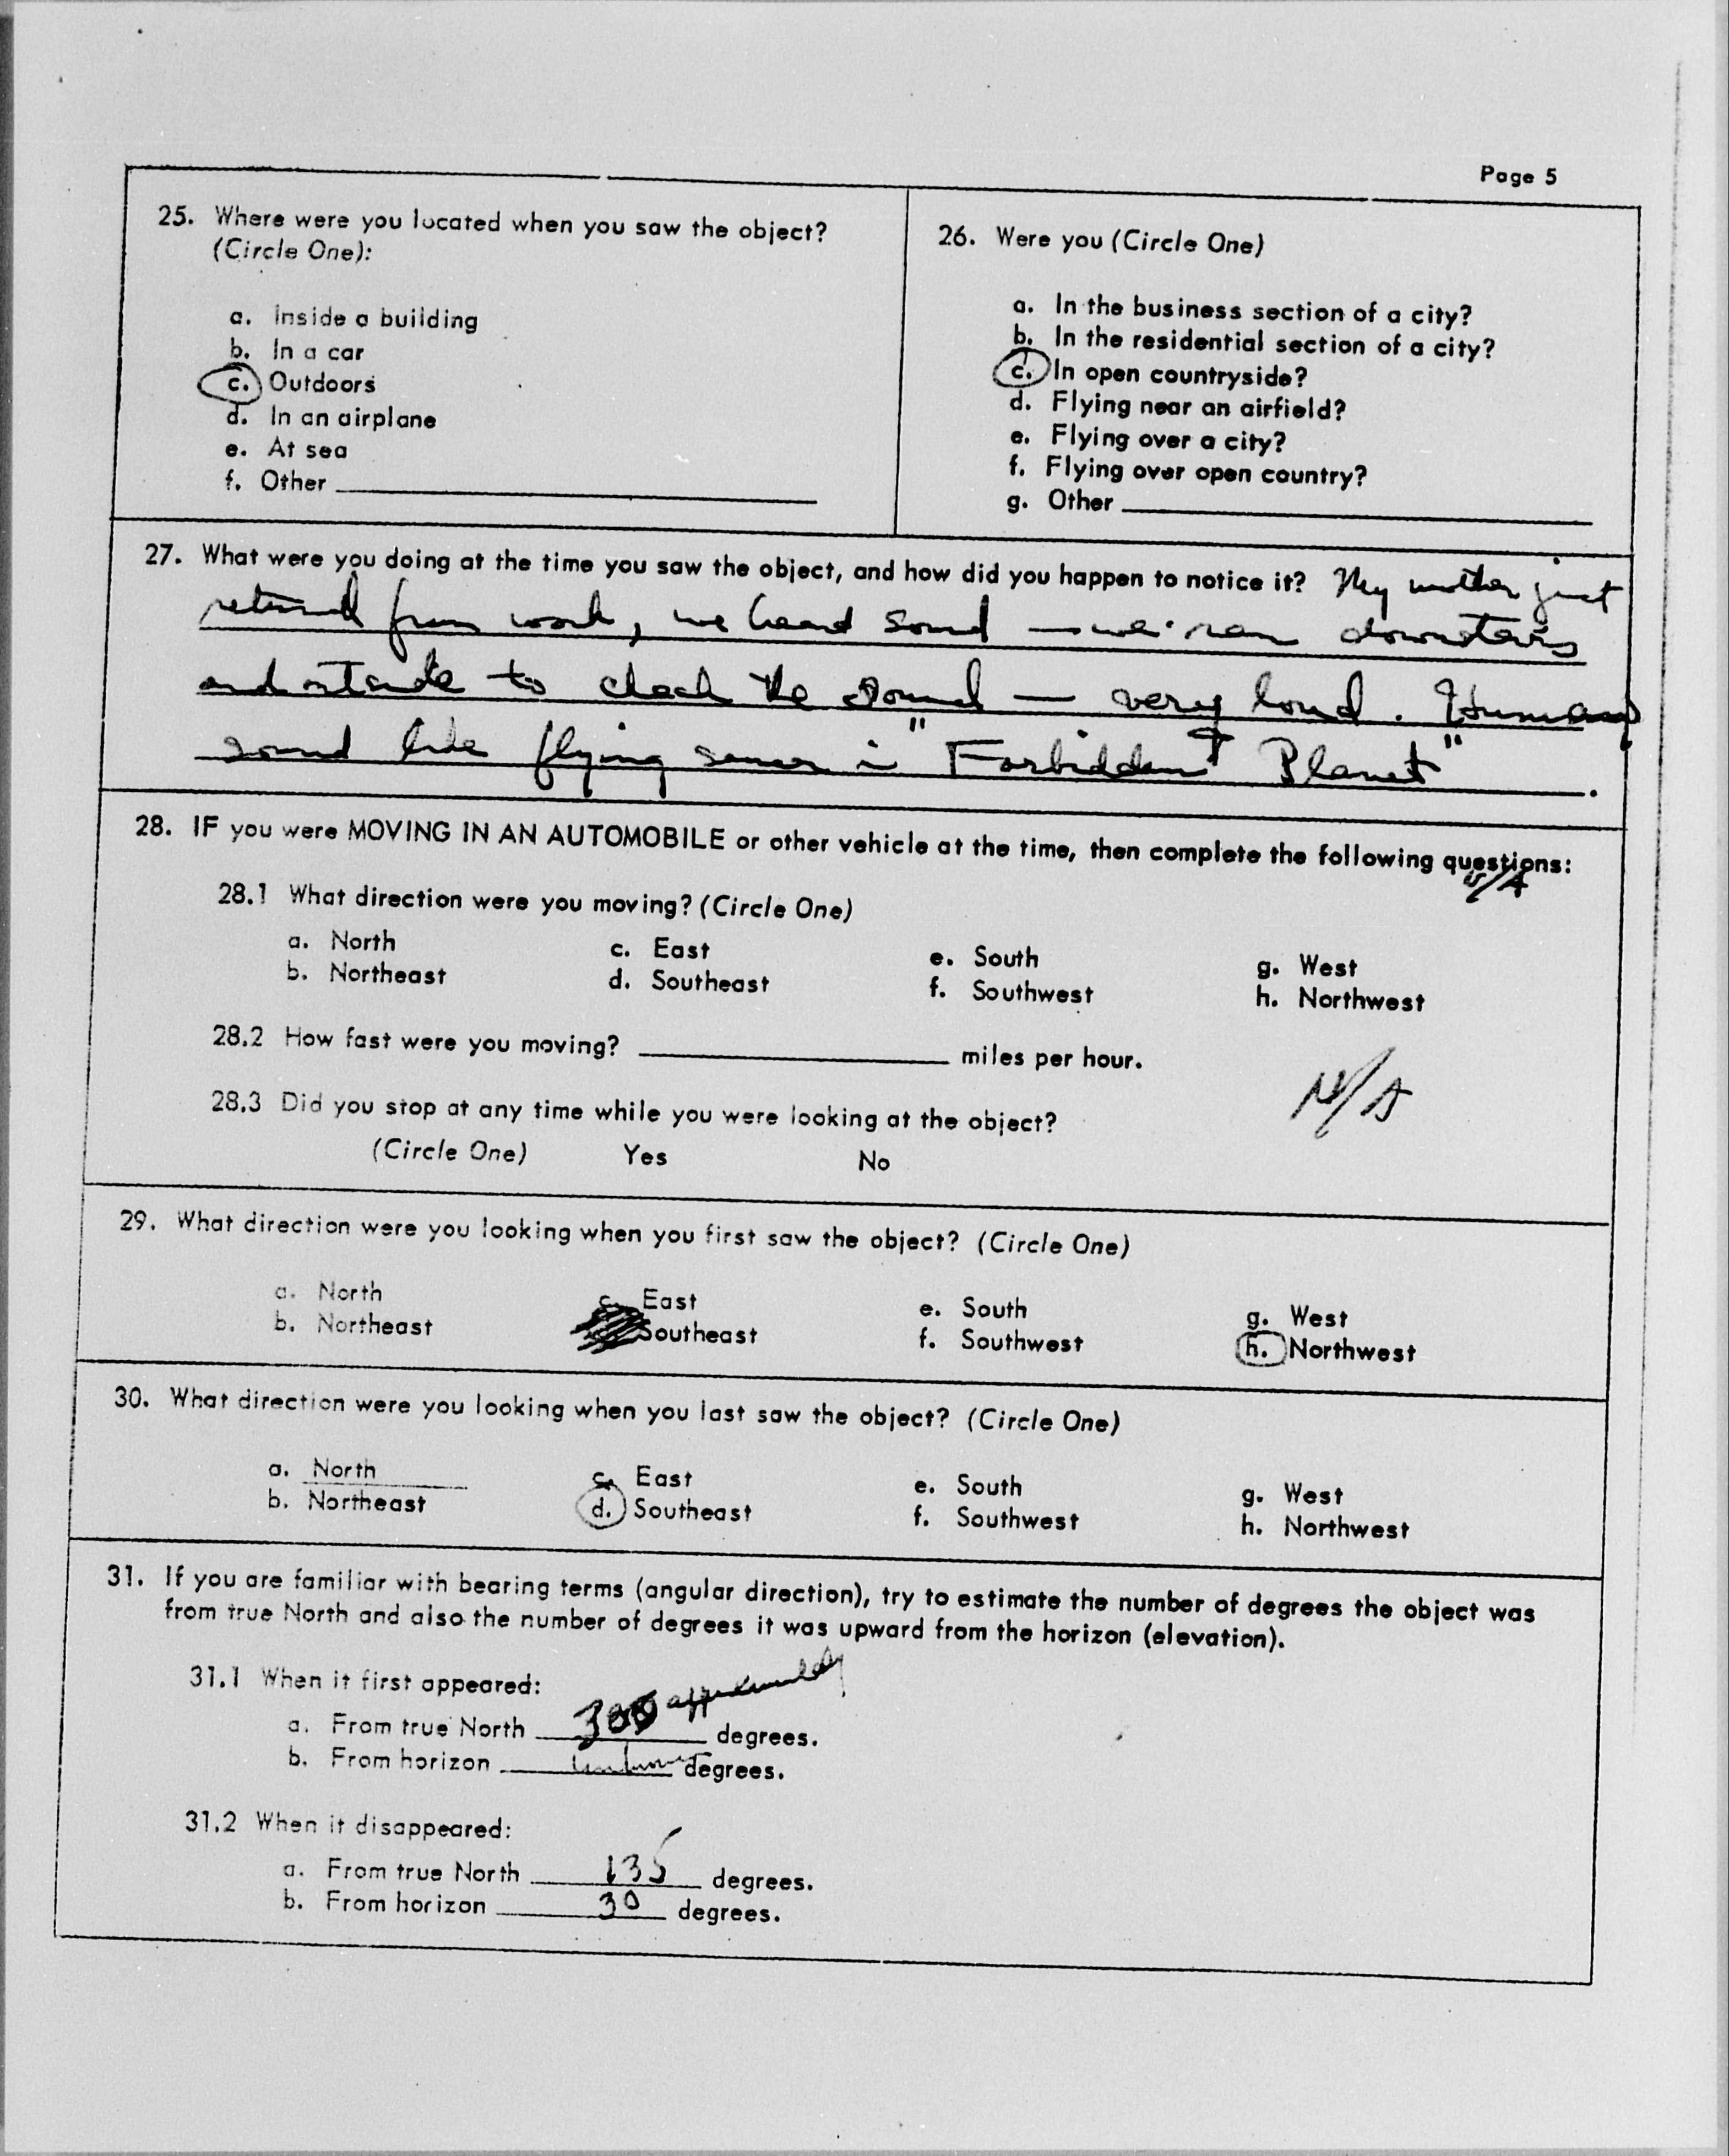 Page 5
25. Where were you located when you saw the object?
(Circle One):
a. Inside a building
b. In a car
c. Outdoors
d. In an airplane
e. At sea
f. Other
26. Were you (Circle One)
a. In the business section of a city?
b. In the residential section of a city?
c. In open countryside?
d. Flying near an airfield?
e. Flying over a city?
f. Flying over open country?
g. Other
27. What were you doing at the time you saw the object, and how did you happen to notice it? My mother just
returned from work, we heard sound — we ran downstairs
and outside to check the sound — very loud. Humming
sound like flying saucer in "Forbidden Planet".
28. IF you were MOVING IN AN AUTOMOBILE or other vehicle at the time, then complete the following questions:
N/A
28.1 What direction were you moving? (Circle One)
a. North c. East e. South g. West
b. Northeast d. Southeast f. Southwest h. Northwest
28.2 How fast were you moving? miles per hour.
N/A
28.3 Did you stop at any time while you were looking at the object?
(Circle One) Yes No
29. What direction were you looking when you first saw the object? (Circle One)
a. North c. East e. South g. West
b. Northeast Southeast f. Southwest h. Northwest
30. What direction were you looking when you last saw the object? (Circle One)
a. North c. East e. South g. West
b. Northeast d. Southeast f. Southwest h. Northwest
31. If you are familiar with bearing terms (angular direction), try to estimate the number of degrees the object was
from true North and also the number of degrees it was upward from the horizon (elevation).
31.1 When it first appeared:
a. From true North 300 approximately degrees.
b. From horizon unknown degrees.
31.2 When it disappeared:
a. From true North 135 degrees.
b. From horizon 30 degrees.